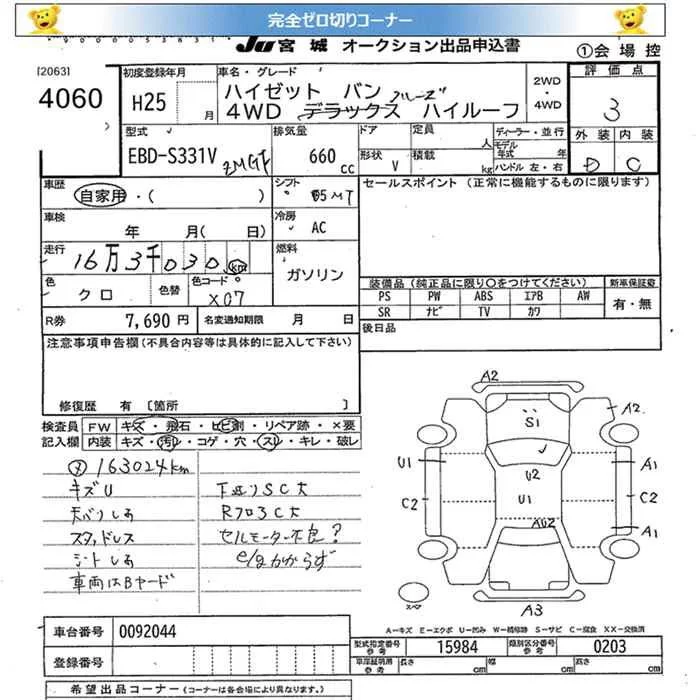 完全ゼロ切りコーナー
JU 宮城 オークション出品申込書
①会場控
[2063]
4060
初度登録年月
H25 月
車名・グレード
ハイゼット バン クルーズ
4WD デラックス ハイルーフ
2WD
・
4WD
評価点
3
外装 内装
D C
型式
EBD-S331V
排気量
660 cc
ドア
形状 V
定員 人
積載 kg
ディーラー・並行
モデル年式 年
ハンドル 左・右
車歴
自家用・( )
シフト
F5 MT
セールスポイント (正常に機能するものに限ります)
車検
年 月( 日)
冷房
AC
走行
16万3千030km
燃料
ガソリン
色
クロ
色替
色コード
X07
装備品(純正品に限り○をつけてください)
新車保証書
PS PW ABS エアB AW
SR ナビ TV カワ
有・無
R券 7,690円
名変通知期限 月 日
後日品
注意事項申告欄(不具合内容等は具体的に記入して下さい)
修復歴 有 [箇所 ]
検査員記入欄
FW キズ・飛石・ヒビ割・リペア跡・×要
内装 キズ・汚れ・コゲ・穴・スレ・キレ・破レ
163024km
キズU
天バリしみ
スタッドレス
シートしみ
車両はBヤード
下廻りSC大
Rフロ3C大
セルモーター不良?
e/gかからず
A2
S1
A2
U1
U2
A1
C2
U1
C2
AU2
A1
A3
スペア
A−キズ E−エクボ U−凹み W−補修跡 S−サビ C−腐食 XX−交換済
車台番号 0092044
登録番号
型式指定番号 参考 15984
類別区分番号 参考 0203
車庫証明用 参考 長さ cm 幅 cm 高さ cm
希望出品コーナー(コーナーは各会場により異なります。)